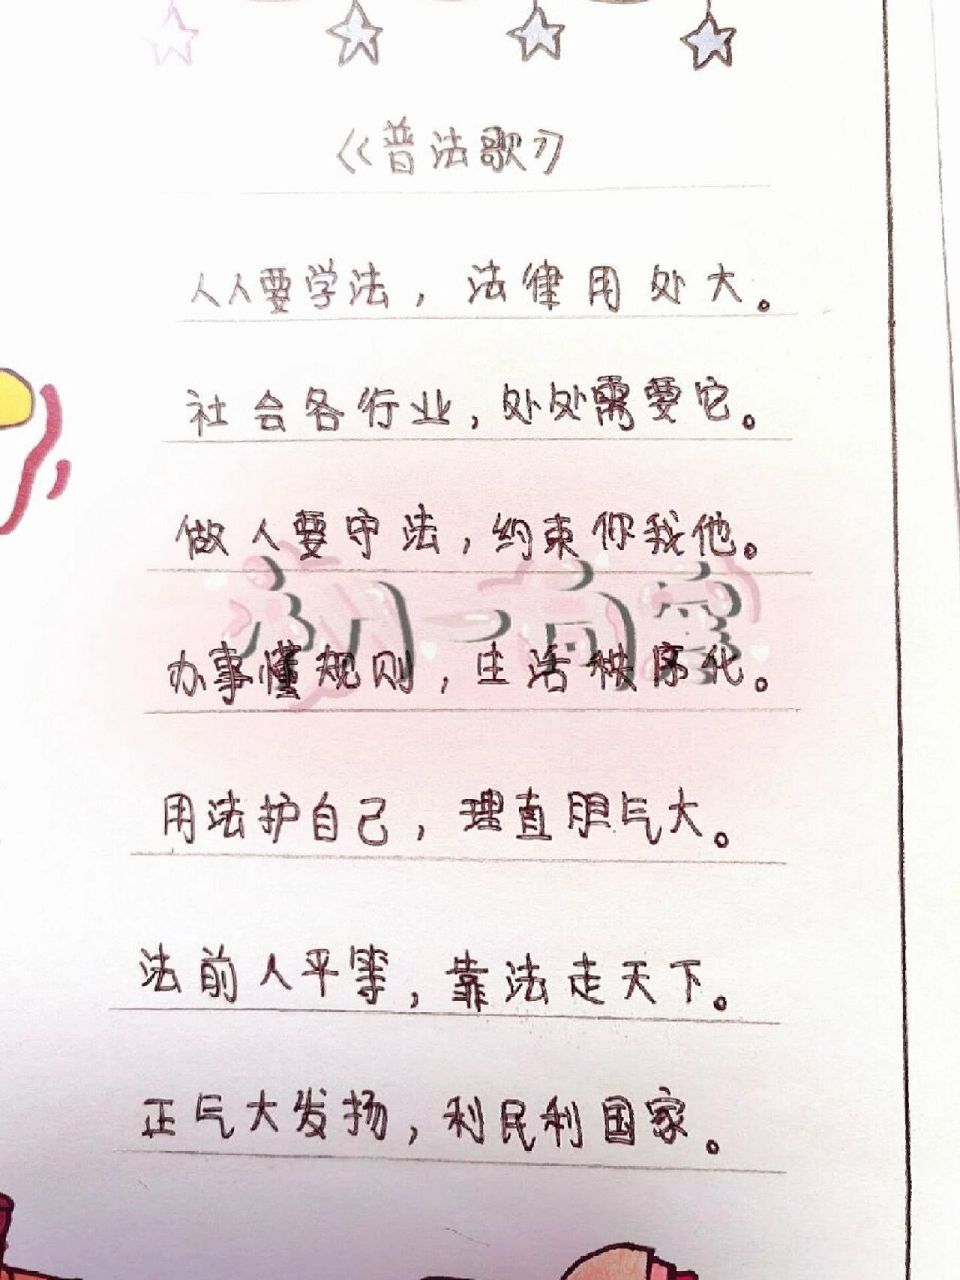 《普法歌》
人人要学法，法律用处大。
社会各行业，处处需要它。
做人要守法，约束你我他。
办事懂规则，生活秩序化。
用法护自己，理直胆气大。
法前人平等，靠法走天下。
正气大发扬，利民利国家。